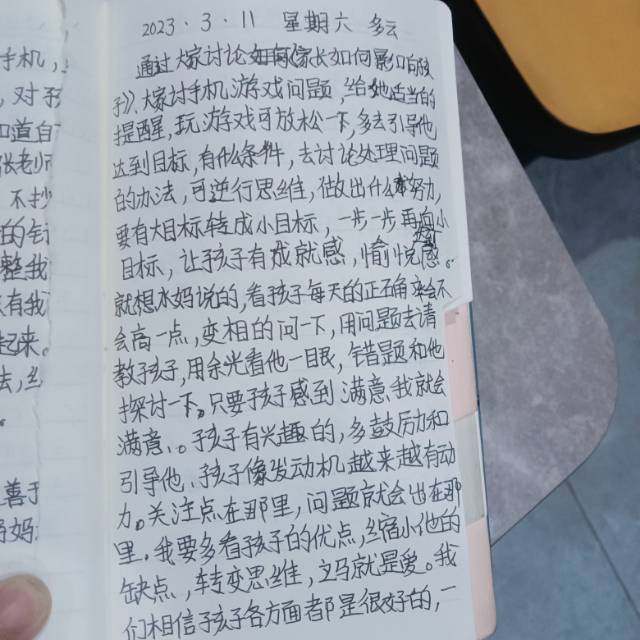 2023.3.11 星期六 多云
通过大家讨论如何《家长如何影响孩
子》、大家讨手机游戏问题，给她适当的
提醒，玩游戏可放松一下，多去引导他
达到目标，有什么条件，去讨论处理问题
的办法，可逆行思维，做出什么努力，
要有大目标转成小目标，一步一步再向小
目标，让孩子有成就感，愉悦感。
就想水妈说的，看孩子每天的正确率会不
会高一点，变相的问一下，用问题去请
教孩子，用余光看他一眼，错题和他
探讨一下。只要孩子感到满意、我就会
满意、。孩子有兴趣的，多鼓励和
引导他、孩子像发动机越来越有动
力。关注点在那里，问题就会出在那
里。我要多看孩子的优点，缩小他的
缺点，转变思维，立马就是爱。我
们相信孩子各方面都是很好的，一
手机，
，对于
知道自
张老师
不抄
的针
整我
没有我
起来。
法，
善于
妈妈